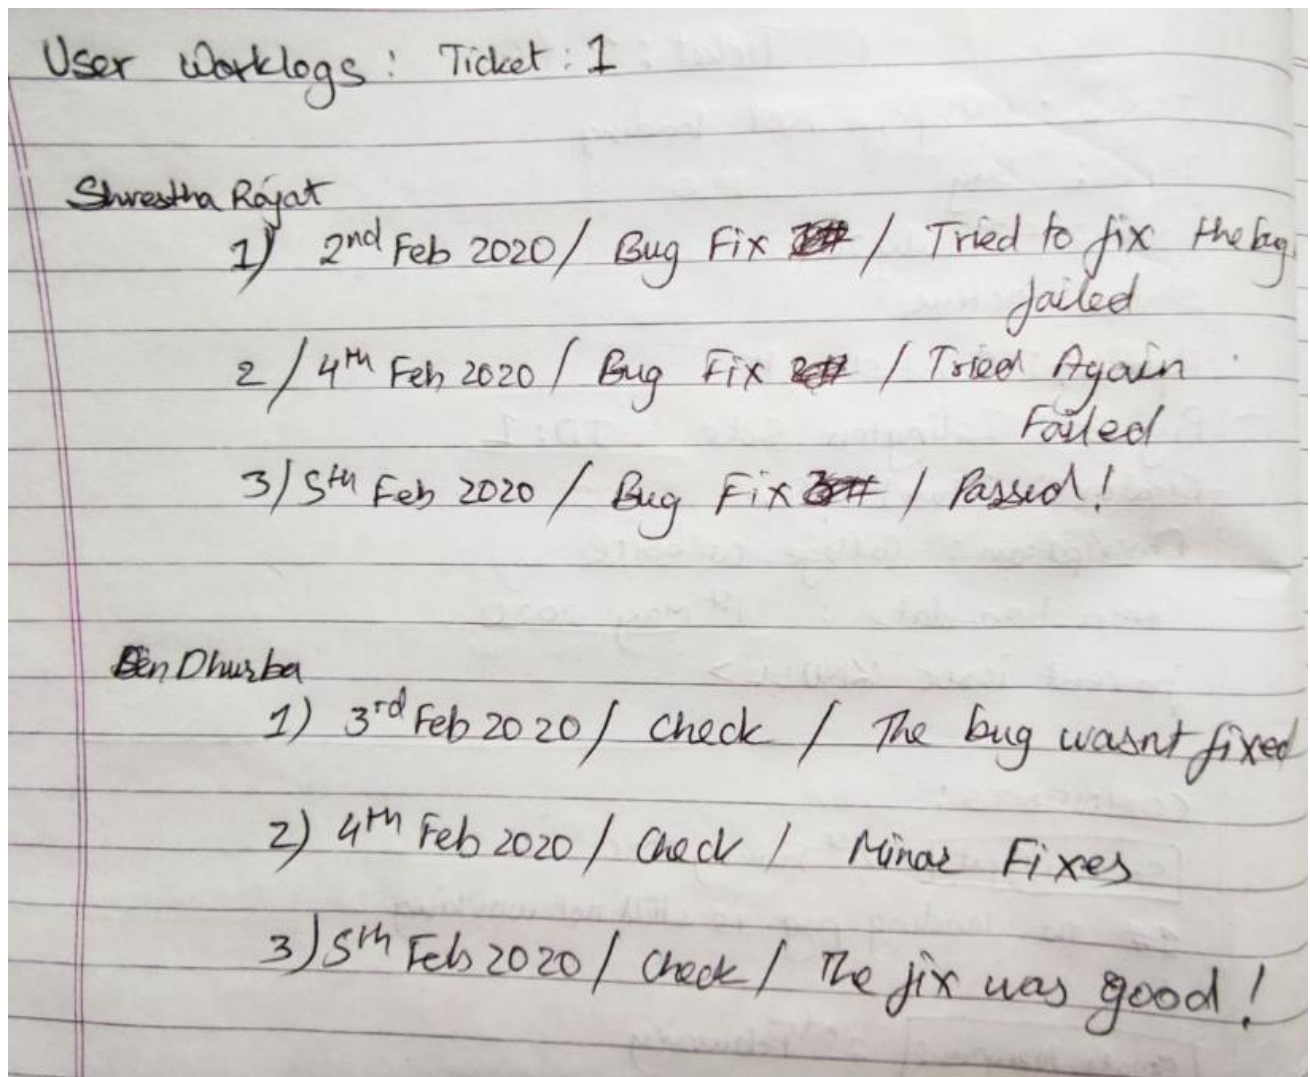 User Worklogs : Ticket : 1
Shrestha Rajat
1) 2nd Feb 2020 / Bug Fix / Tried to fix the bug,
failed
2 / 4th Feb 2020 / Bug Fix / Tried Again
Failed
3) 5th Feb 2020 / Bug Fix / Passed !
Dhurba
1) 3rd Feb 2020 / Check / The bug wasnt fixed
2) 4th Feb 2020 / Check / Minor Fixes
3) 5th Feb 2020 / Check / The fix was good !